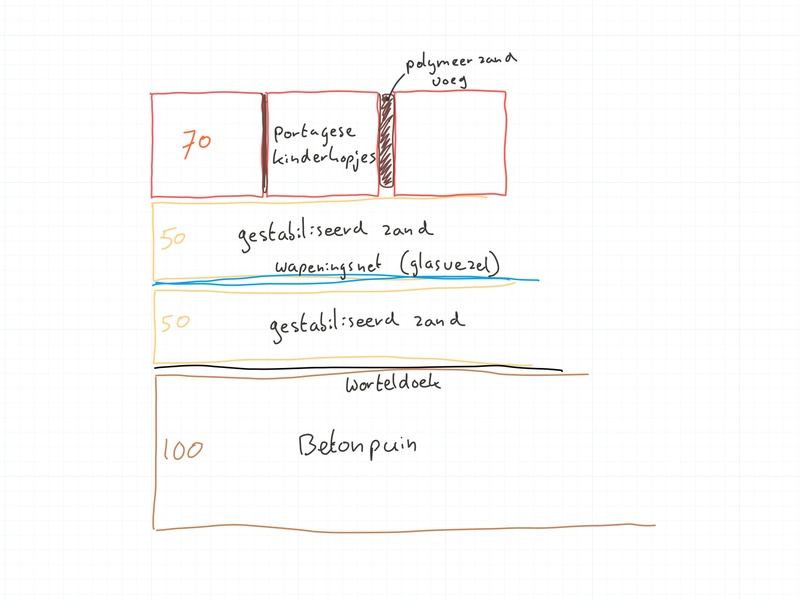 polymeer zand
voeg
70
Portagese
kinderkopjes
50
gestabiliseerd zand
wapeningsnet (glasvezel)
50
gestabiliseerd zand
worteldoek
100
Betonpuin